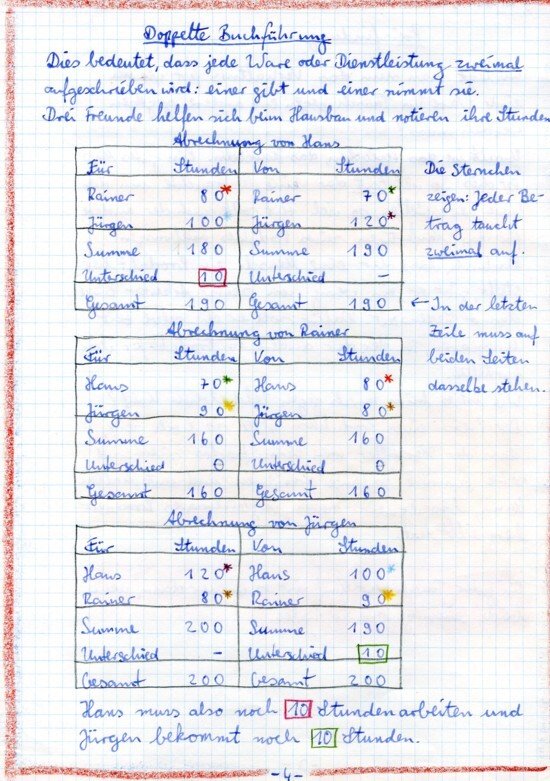 Doppelte Buchführung
Dies bedeutet, dass jede Ware oder Dienstleistung zweimal
aufgeschrieben wird: einer gibt und einer nimmt sie.
Drei Freunde helfen sich beim Hausbau und notieren ihre Stunden
Abrechnung von Hans
Für Stunden Von Stunden
Rainer 80* Rainer 70*
Jürgen 100* Jürgen 120*
Summe 180 Summe 190
Unterschied 10 Unterschied –
Gesamt 190 Gesamt 190
Die Sternchen
zeigen: Jeder Be-
trag taucht
zweimal auf.
← In der letzten
Zeile muss auf
beiden Seiten
dasselbe stehen.
Abrechnung von Rainer
Für Stunden Von Stunden
Hans 70* Hans 80*
Jürgen 90* Jürgen 80*
Summe 160 Summe 160
Unterschied 0 Unterschied 0
Gesamt 160 Gesamt 160
Abrechnung von Jürgen
Für Stunden Von Stunden
Hans 120* Hans 100*
Rainer 80* Rainer 90*
Summe 200 Summe 190
Unterschied – Unterschied 10
Gesamt 200 Gesamt 200
Hans muss also noch 10 Stunden arbeiten und
Jürgen bekommt noch 10 Stunden.
-4-